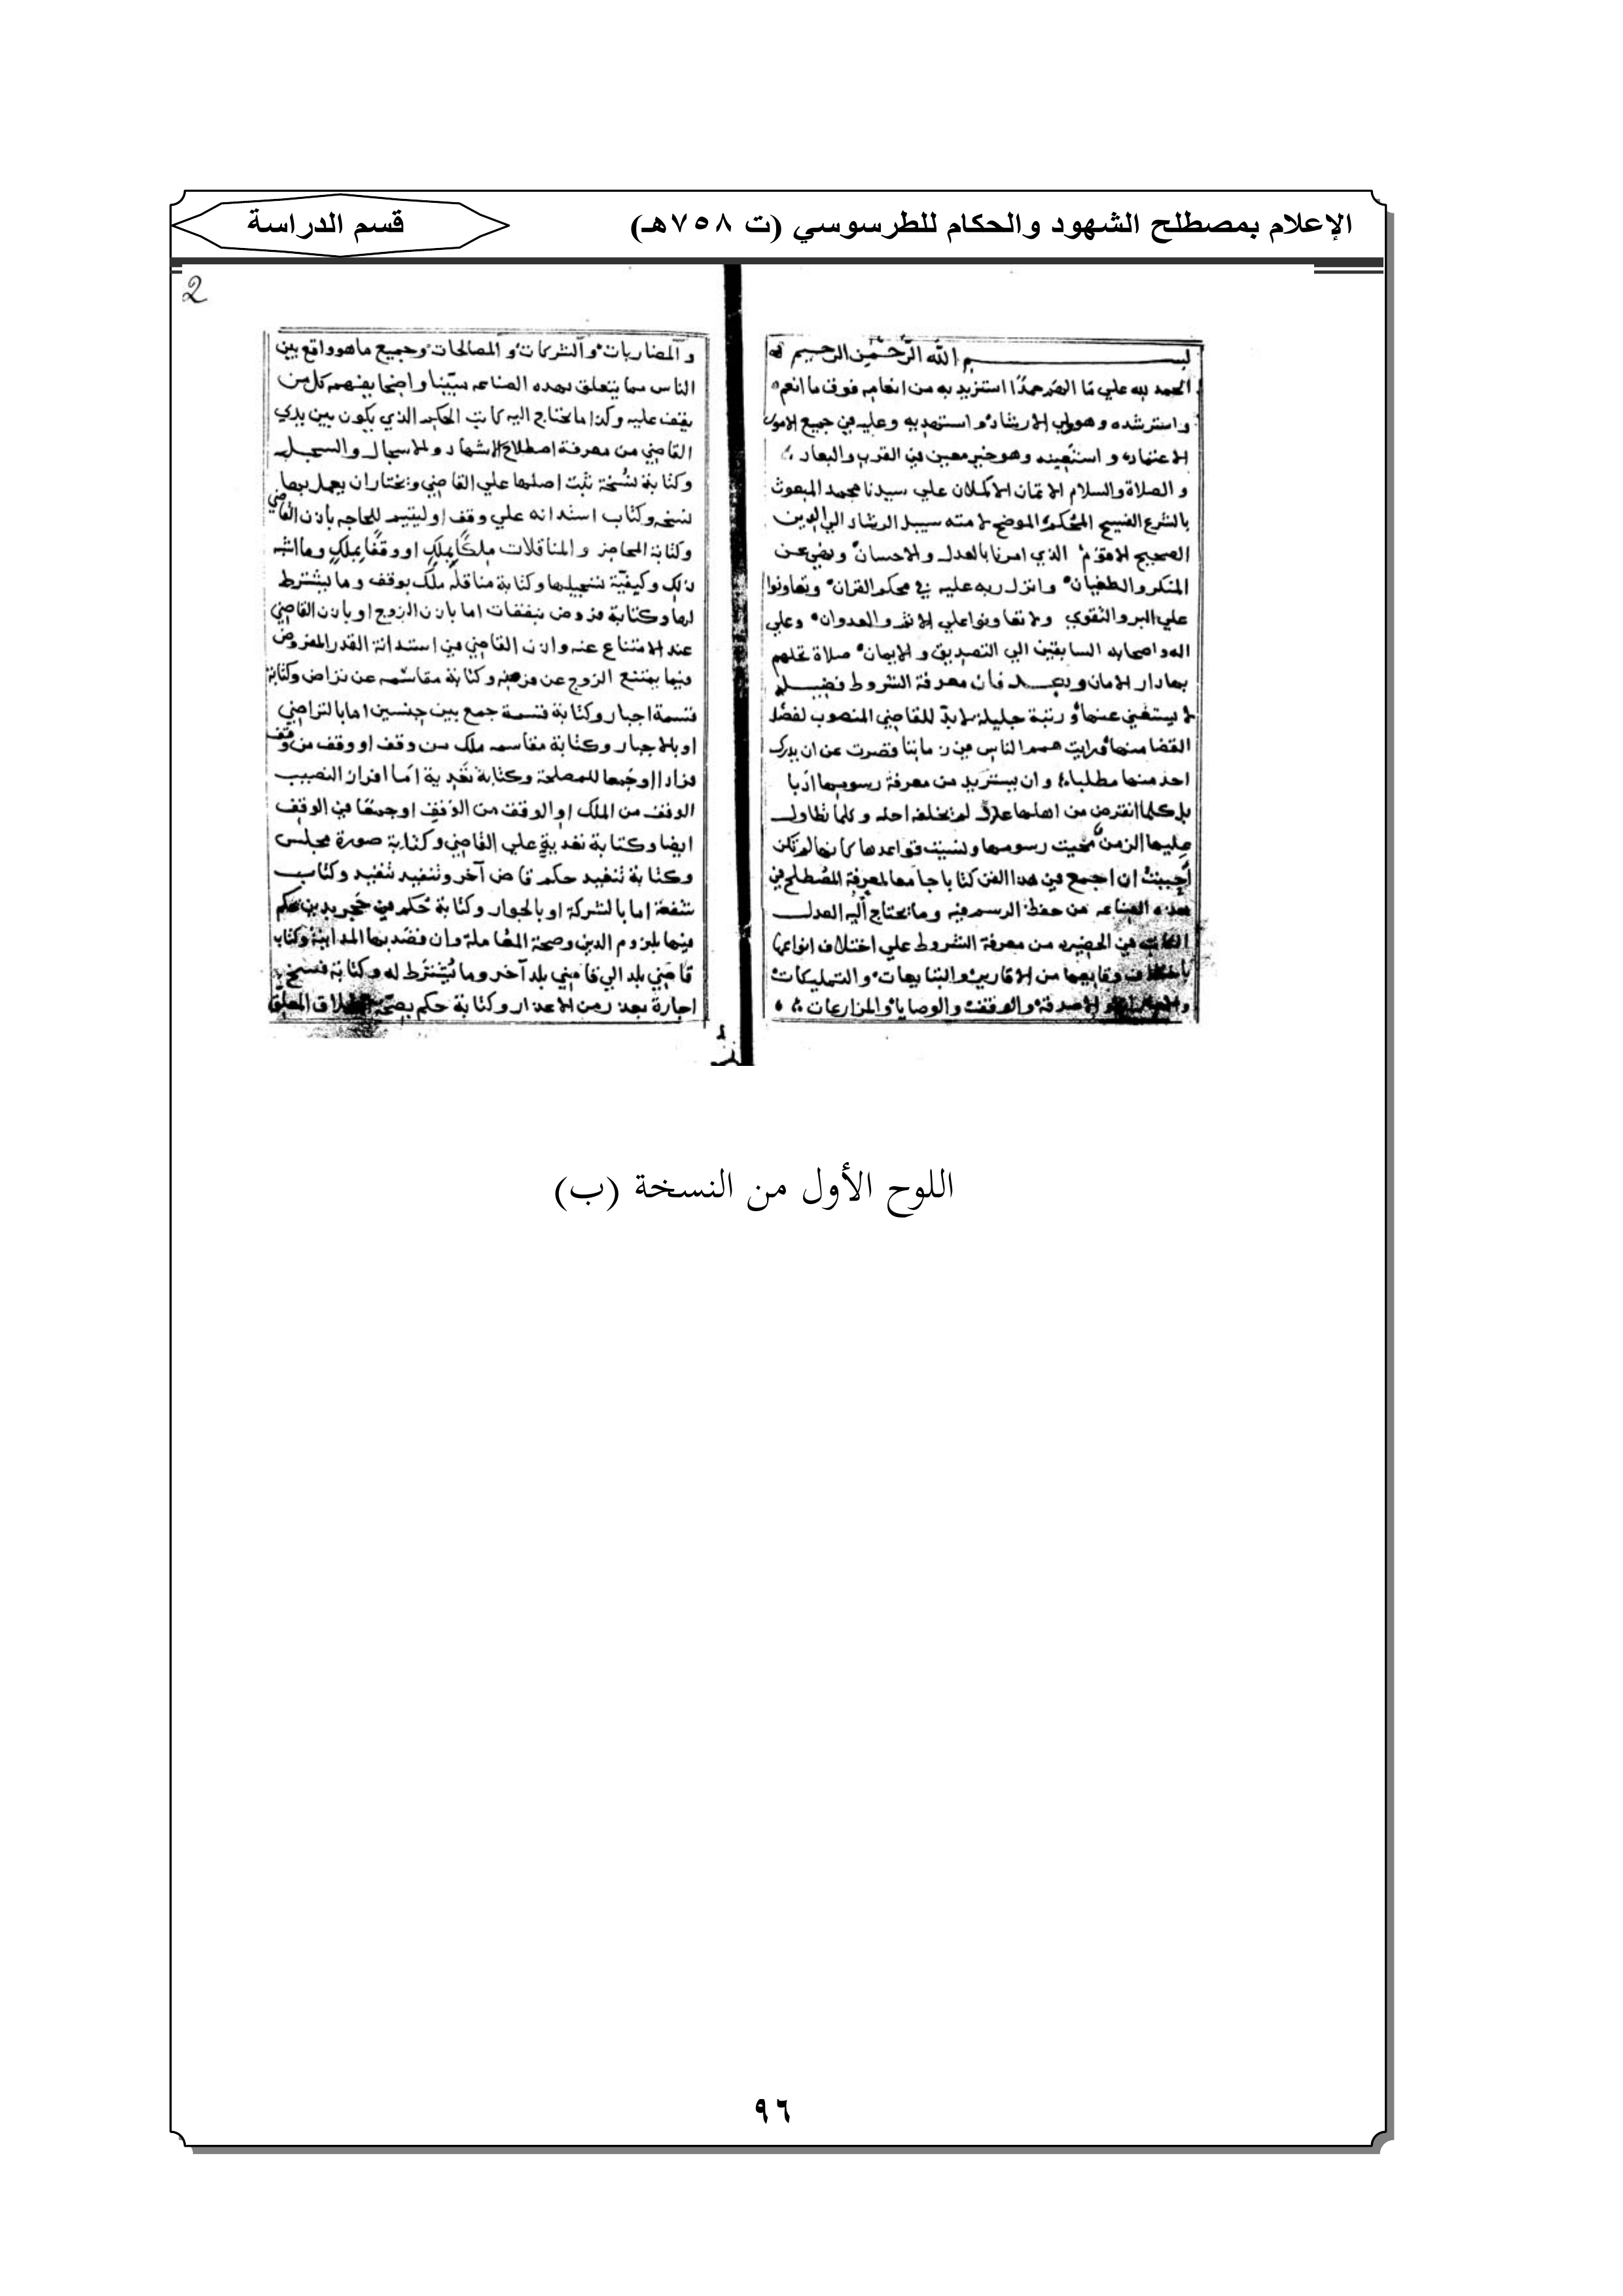 الإعلام بمصطلح الشهود والحكام للطرسوسي (ت ٧٥٨هـ)
قسم الدراسة
2
بسم الله الرحمن الرحيم
الحمد لله علي ما الهم حمدًا استزيد به من انعامه فوق ما انعم
واسترشده وهو ولي الارشاد واستهديه وعليه في جميع الامور
الاعتماد واستعينه وهو خير معين في القرب والبعاد
والصلاة والسلام الاتمان الاكملان علي سيدنا محمد المبعوث
بالشرع الفسيح المحكم الموضح لامته سبيل الرشاد الي الدين
الصحيح الاقوم الذي امرنا بالعدل والاحسان ونهي عن
المنكر والطغيان وانزل ربه عليه في محكم القران وتعاونوا
علي البر والتقوي ولا تعاونوا علي الاثم والعدوان وعلي
اله واصحابه السابقين الي التصديق والايمان صلاة تحلهم
بها دار الامان وبعد فان معرفة الشروط فضيلة
لا يستغني عنها ورتبة جليلة لا بد للقاضي المنصوب لفصل
القضا منها فرايت همم الناس في زماننا قصرت عن ان يدرك
احد منها مطلبا وان يستزيد من معرفة رسومها ادبا
بل كلما انقرض من اهلها عارف لم يخلفه احد وكلما تطاول
عليها الزمن محيت رسومها ونسيت قواعدها كانها لم تكن
احببت ان اجمع في هذا الفن كتابا جامعا لمعرفة المصطلح في
هذه الصناعه من حفظ الرسم فيه وما يحتاج اليه العدل
الكاتب في الحضيره من معرفة الشروط علي اختلاف انواعها
وقايعها من الاقارير والتبايعات والتمليكات
والاصدقة والوقف والوصايا والمزارعات
والمضاربات والشركات والمصالحات وجميع ما هو واقع بين
الناس مما يتعلق بهذه الصناعه مبينا واضحا يفهمه كل من
يقف عليه وكذا ما يحتاج اليه كاتب الحكم الذي يكون بين يدي
القاضي من معرفة اصطلاح الاشهاد والاسجال والسجل
وكتابة نسخة ثبت اصلها علي القاضي ويختار ان يعمل بها
نسخه وكتاب استدانه علي وقف او ليتيم للحاجه باذن القاضي
وكتابة المحاضر والمناقلات ملكًا بملك او وقفًا بملك وما اشبه
ذلك وكيفية تسجيلها وكتابة مناقلة ملك بوقف وما يشترط
لها وكتابة فروض بنفقات اما باذن الزوج او باذن القاضي
عند الامتناع عنه واذن القاضي في استدانة القدر المفروض
فيما يمتنع الزوج عن فرضه وكتابة مقاسمه عن تراض وكتابة
قسمة اجبار وكتابة قسمة جمع بين جنسين اما بالتراضي
او بالاجبار وكتابة مقاسمه ملك من وقف او وقف من وقف
للمصلحة وكتابة تعدية اما افراز النصيب
الوقف من الملك او الوقف من الوقف او جمعًا في الوقف
ايضا وكتابة تعدية علي القاضي وكتابة صورة مجلس
وكتابة تنفيذ حكم قاض آخر وتنفيذ تنفيذ وكتاب
شفعة اما بالشركة او بالجوار وكتابة حكم في
فيها بلزوم الدين وصحة المعاملة وان قصد بها المداينة وكتاب
قاضي بلد الي قاضي بلد آخر وما يشترط له وكتابة فسخ
اجارة بعذر من الاعذار وكتابة حكم بصحة الطلاق المعلق
اللوح الأول من النسخة (ب)
٩٦